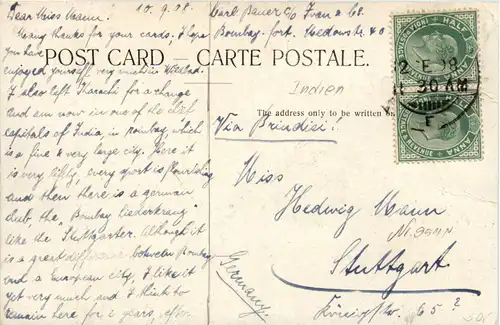 Dear Miss Mann! 10.9.08.
Many thanks for your cards, I hope
you have
enjoyed yourself very much in
I also left Karachi for a change
and am now in one of the
capitals of India, in Bombay, which
is a fine & very large city. Here it
is very jolly, every sport is flourishing
and then there is a german
club, the "Bombay Liederkranz"
like the "Stuttgarter". Although it
is a great difference between Bombay
and a European city, I like it
yet very much and I think to
remain here for 2 years, often
Carl Bauer c/o Ivan & Co.
Bombay-fort. Meadowstr. 40
POST CARD — CARTE POSTALE.
Indien
The address only to be written on
Via Brindisi!
Miss
Hedwig Mann
Stuttgart
Königstr. 65?
Germany.
HALF ANNA
30 AM